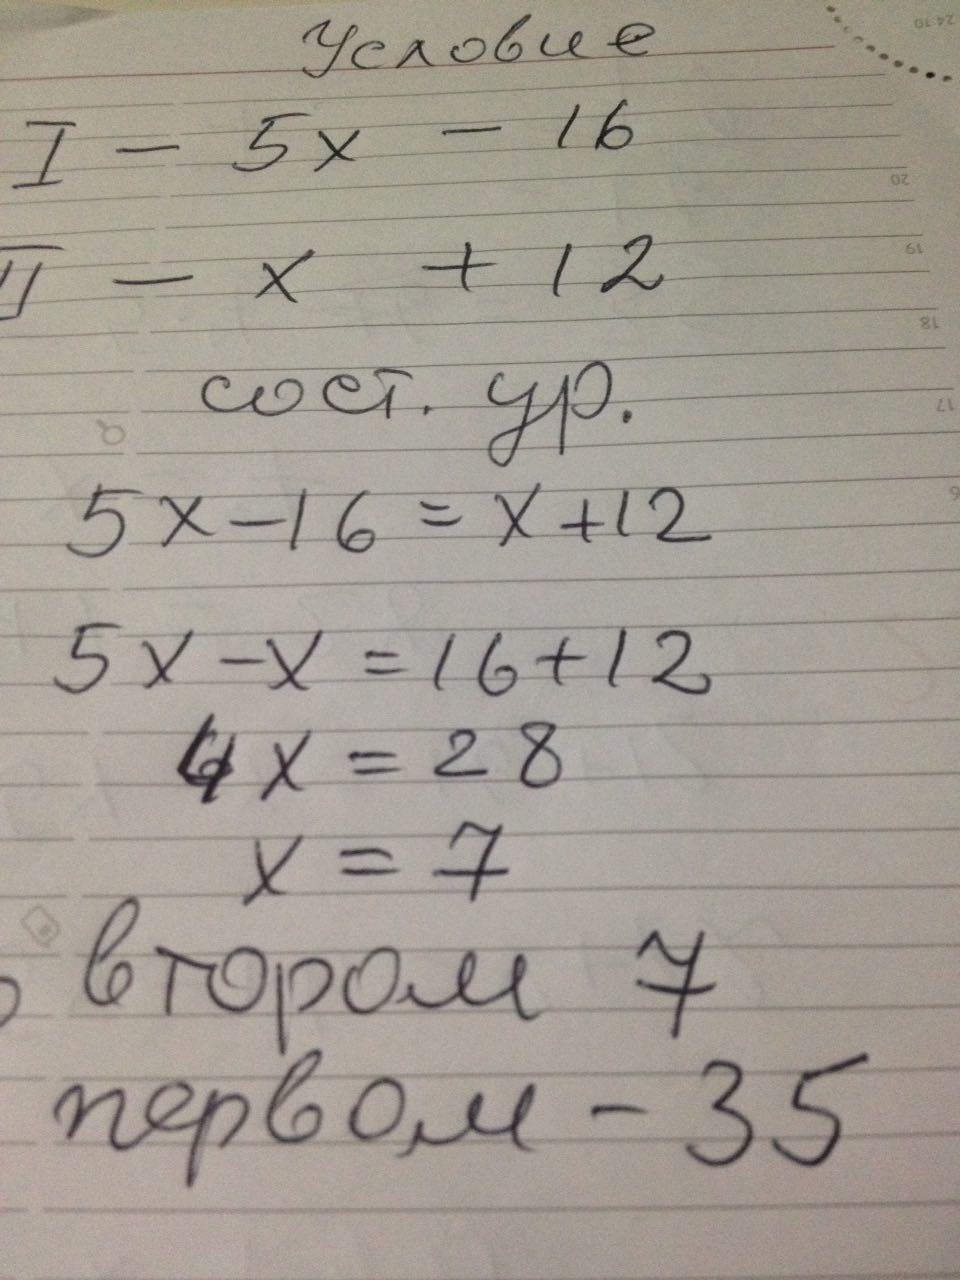 Условие
I - 5x - 16
II - x + 12
сост. ур.
5x-16=x+12
5x-x=16+12
4x=28
x=7
втором 7
первом - 35
20
19
18
17